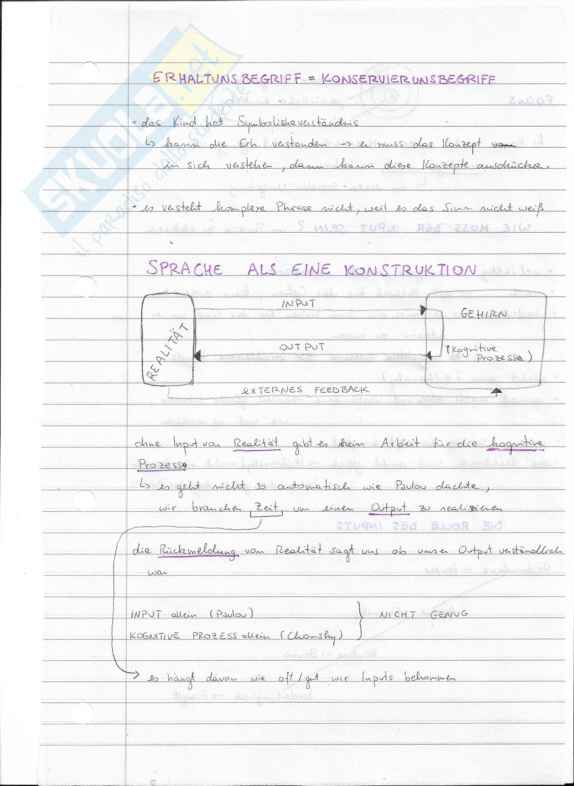 ERHALTUNSBEGRIFF = KONSERVIERUNSBEGRIFF
• das Kind hat Symbolischeverständnis
↳ kann die Erh. verstanden → er muss das Konzept von
in sich verstehen, dann kann diese Konzepte ausdrücken.
• er versteht komplexe Phrase nicht, weil es das Sinn nicht weiß
SPRACHE ALS EINE KONSTRUKTION
INPUT
REALITÄT
GEHIRN
OUTPUT
(kognitive
Prozesse)
EXTERNES FEEDBACK
ohne Input von Realität gibt es kein Arbeit für die kognitive
Prozesse
↳ es geht nicht so automatisch wie Pavlov dachte,
wir brauchen Zeit, um einen Output zu realisieren
die Rückmeldung von Realität sagt uns ob unser Output verständlich
war
INPUT allein (Pavlov)
NICHT GENUG
KOGNITIVE PROZESS allein (Chomsky)
→ es hängt davon wie oft/gut wir Inputs bekommen
SKUOLA.net
il paradiso dello studente